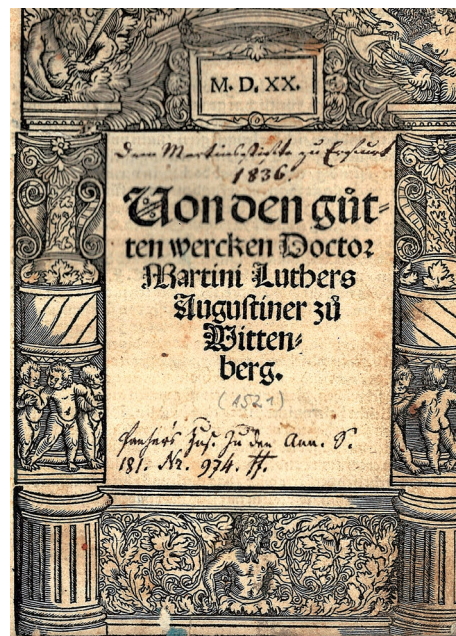 M. D. XX.
Dem Martinsstifte zu Erfurt
1836.
Von den gůt-
ten wercken Doctor
Martini Luthers
Augustiner zů
Witten-
berg.
(1521)
Panzer's Zus. zu den Ann. S.
181. Nr. 974. ff.